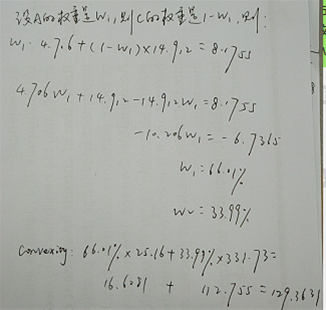 设A的权重是W₁,则C的权重是1-W₁,则:
W₁·4.706+(1-W₁)×14.912=8.1755
4.706W₁+14.912-14.912W₁=8.1755
-10.206W₁=-6.7365
W₁=66.01%
W₂=33.99%
Convexity: 66.01%×25.16+33.99%×331.73=
16.6081 + 112.755=129.3631